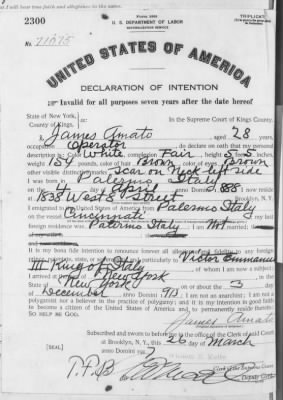 bear true faith and allegiance to the same.
2300
Form 2203
U. S. DEPARTMENT OF LABOR
NATURALIZATION SERVICE
TRIPLICATE
No. 71075
UNITED STATES OF AMERICA
DECLARATION OF INTENTION
Invalid for all purposes seven years after the date hereof
State of New York,
County of Kings,
In the Supreme Court of Kings County.
I, James Amato aged 28 years,
occupation Operator, do declare on oath that my personal
description is: Color White, complexion Fair, height 5 feet 5 inches,
weight 154 pounds, color of hair Brown, color of eyes Brown
other visible distinctive marks Scar on Neck left side
I was born in Palermo Italy
on the 4 day of April, anno Domini 1888; I now reside
at 1838 West 8 Street
I emigrated to the United States of America from Palermo Italy
on the vessel Cincinnati; my last
foreign residence was Palermo Italy; I am Not married;
It is my bona fide intention to renounce forever all allegiance and fidelity to any foreign
prince, potentate, state, or sovereignty, and particularly to Victor Emmanuel
III King of Italy, of whom I am now a subject;
I arrived at the port of New York, in the
State of New York, on or about the 3 day
of December, anno Domini 1913; I am not an anarchist; I am not a
polygamist nor a believer in the practice of polygamy; and it is my intention in good faith
to become a citizen of the United States of America and to permanently reside therein:
SO HELP ME GOD.
James Amato
Subscribed and sworn to before me in the office of the Clerk of said Court
at Brooklyn, N. Y., this 26 day of March
anno Domini 1917
[SEAL]
Clerk of the Supreme Court.